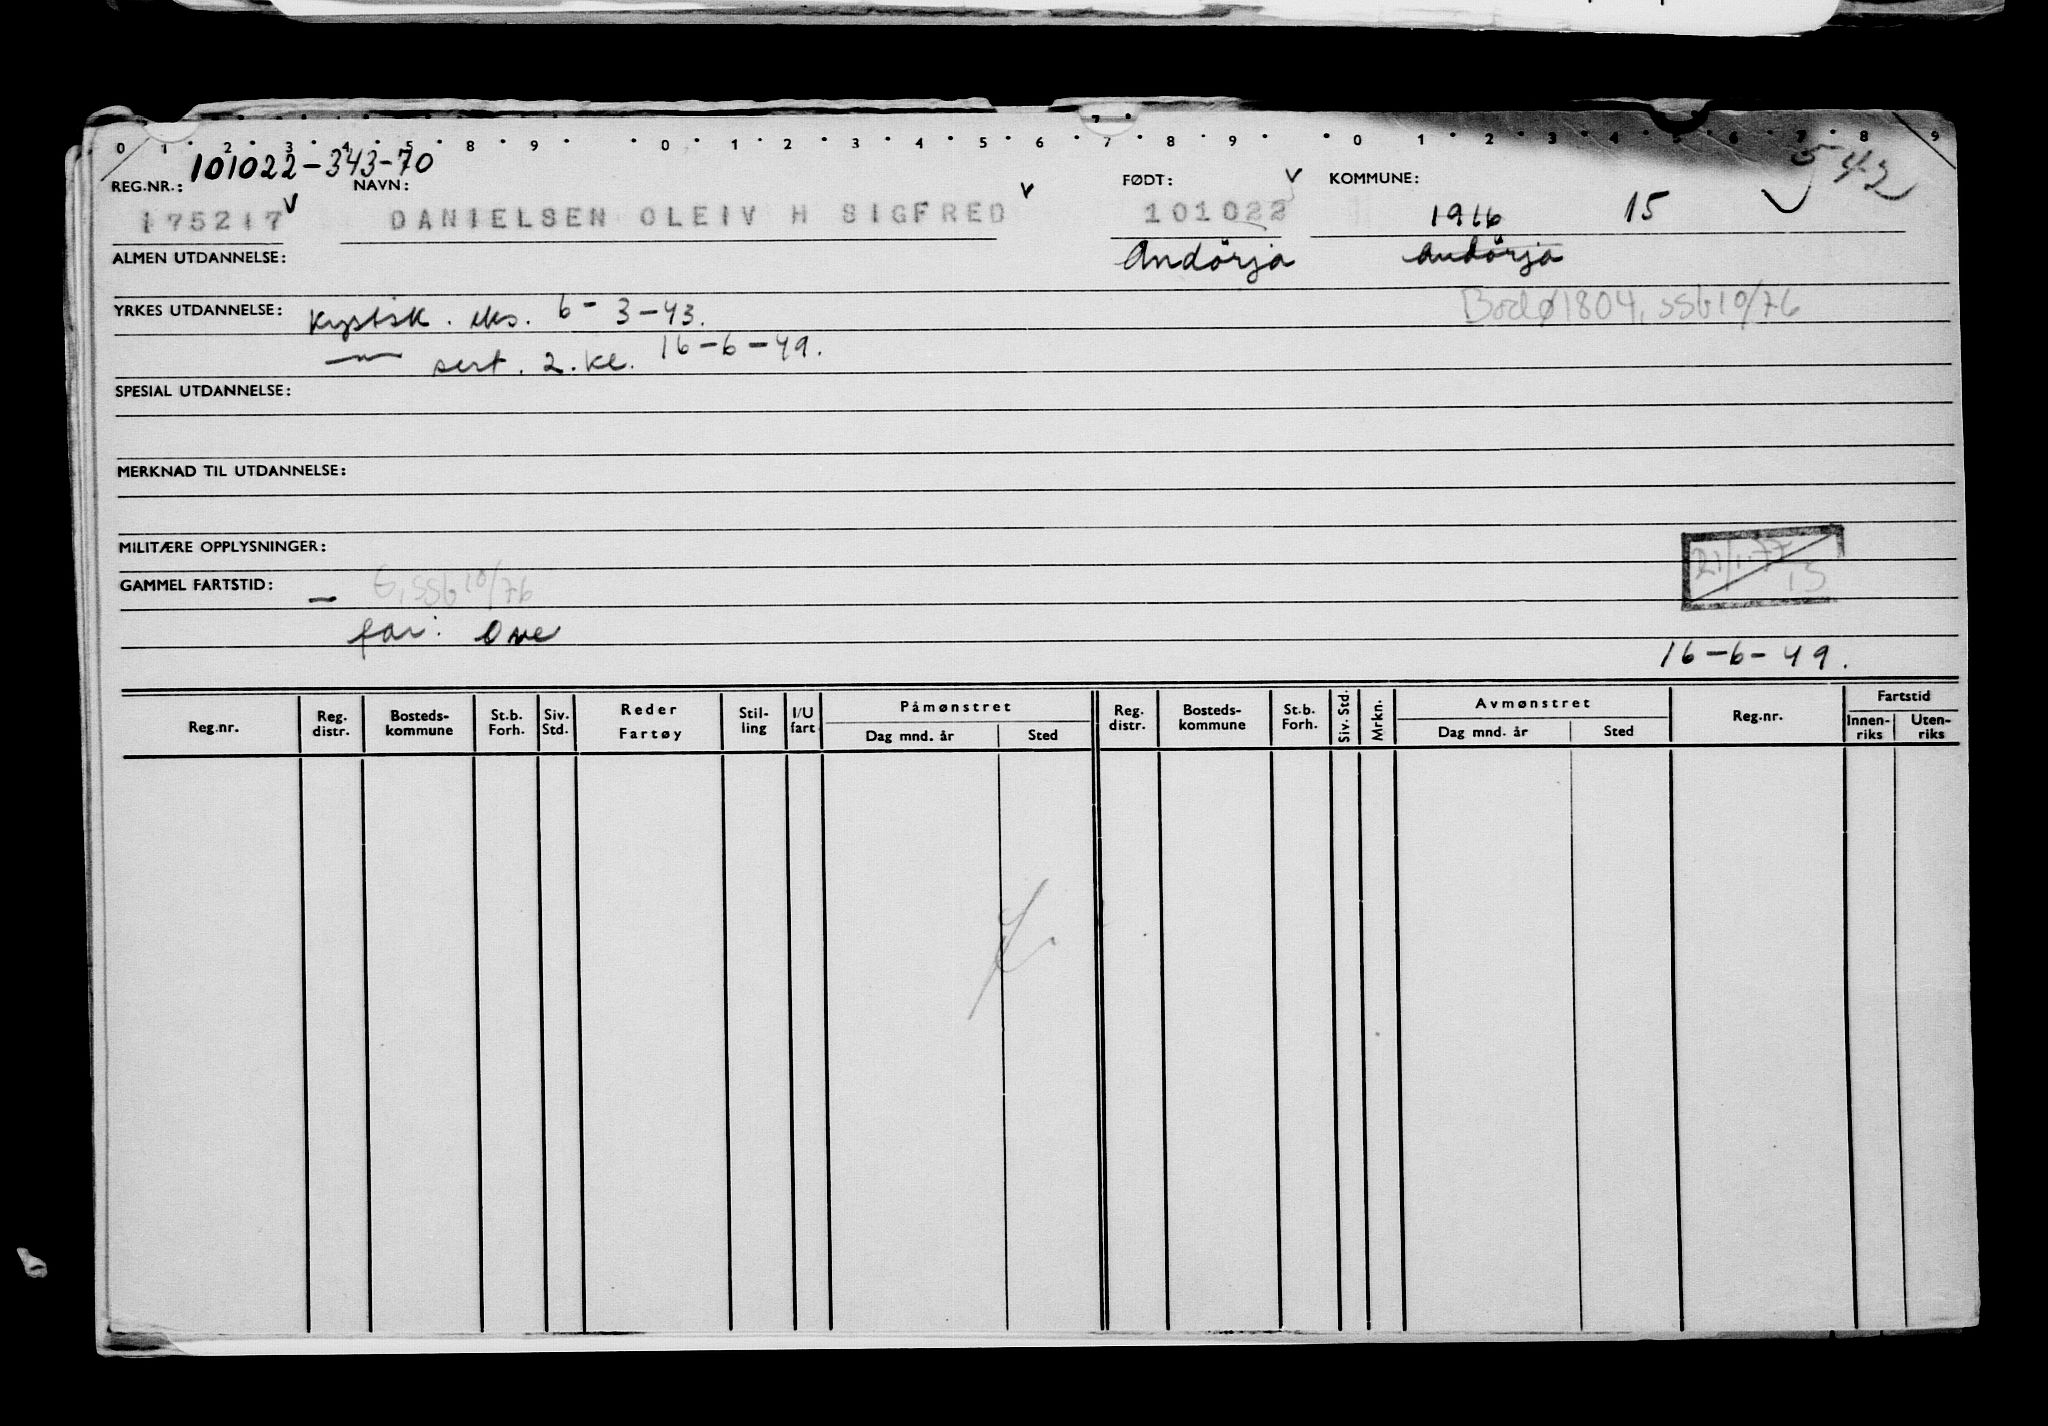 0 1 2 3 4 5 8 9 0 1 2 3 4 5 6 7 8 9 0 1 2 3 4 5 7 8 9
101022-343-70 542
REG.NR.: NAVN: FØDT: KOMMUNE:
175217 DANIELSEN OLEIV H SIGFRED 101022 1916 15
ALMEN UTDANNELSE: Andörja Andörja
YRKES UTDANNELSE: Kystsk. eks. 6-3-43. Bodø 1804, SSB 10/76
— " — sert. 2. kl. 16-6-49.
SPESIAL UTDANNELSE:
MERKNAD TIL UTDANNELSE:
MILITÆRE OPPLYSNINGER: 21/1.77
GAMMEL FARTSTID: — G, SSB 10/76 15
far: Ove
16-6-49.
Reg.nr. Reg. distr. Bosteds-kommune St.b. Forh. Siv. Std. Reder Fartøy Stil-ling I/U fart Påmønstret Dag mnd. år Sted Reg. distr. Bosteds-kommune St.b. Forh. Siv. Std. Mrkn. Avmønstret Dag mnd. år Sted Reg.nr. Fartstid Innen-riks Uten-riks